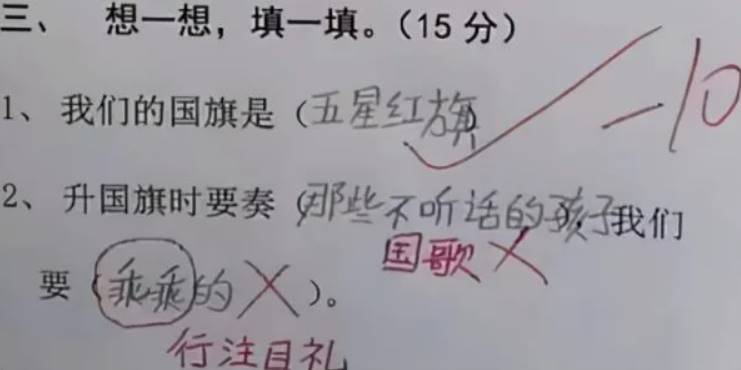 三、 想一想，填一填。（15 分） -10
1、我们的国旗是（五星红旗）
2、升国旗时要奏（那些不听话的孩子我们
国歌
要（乖乖的）。
行注目礼